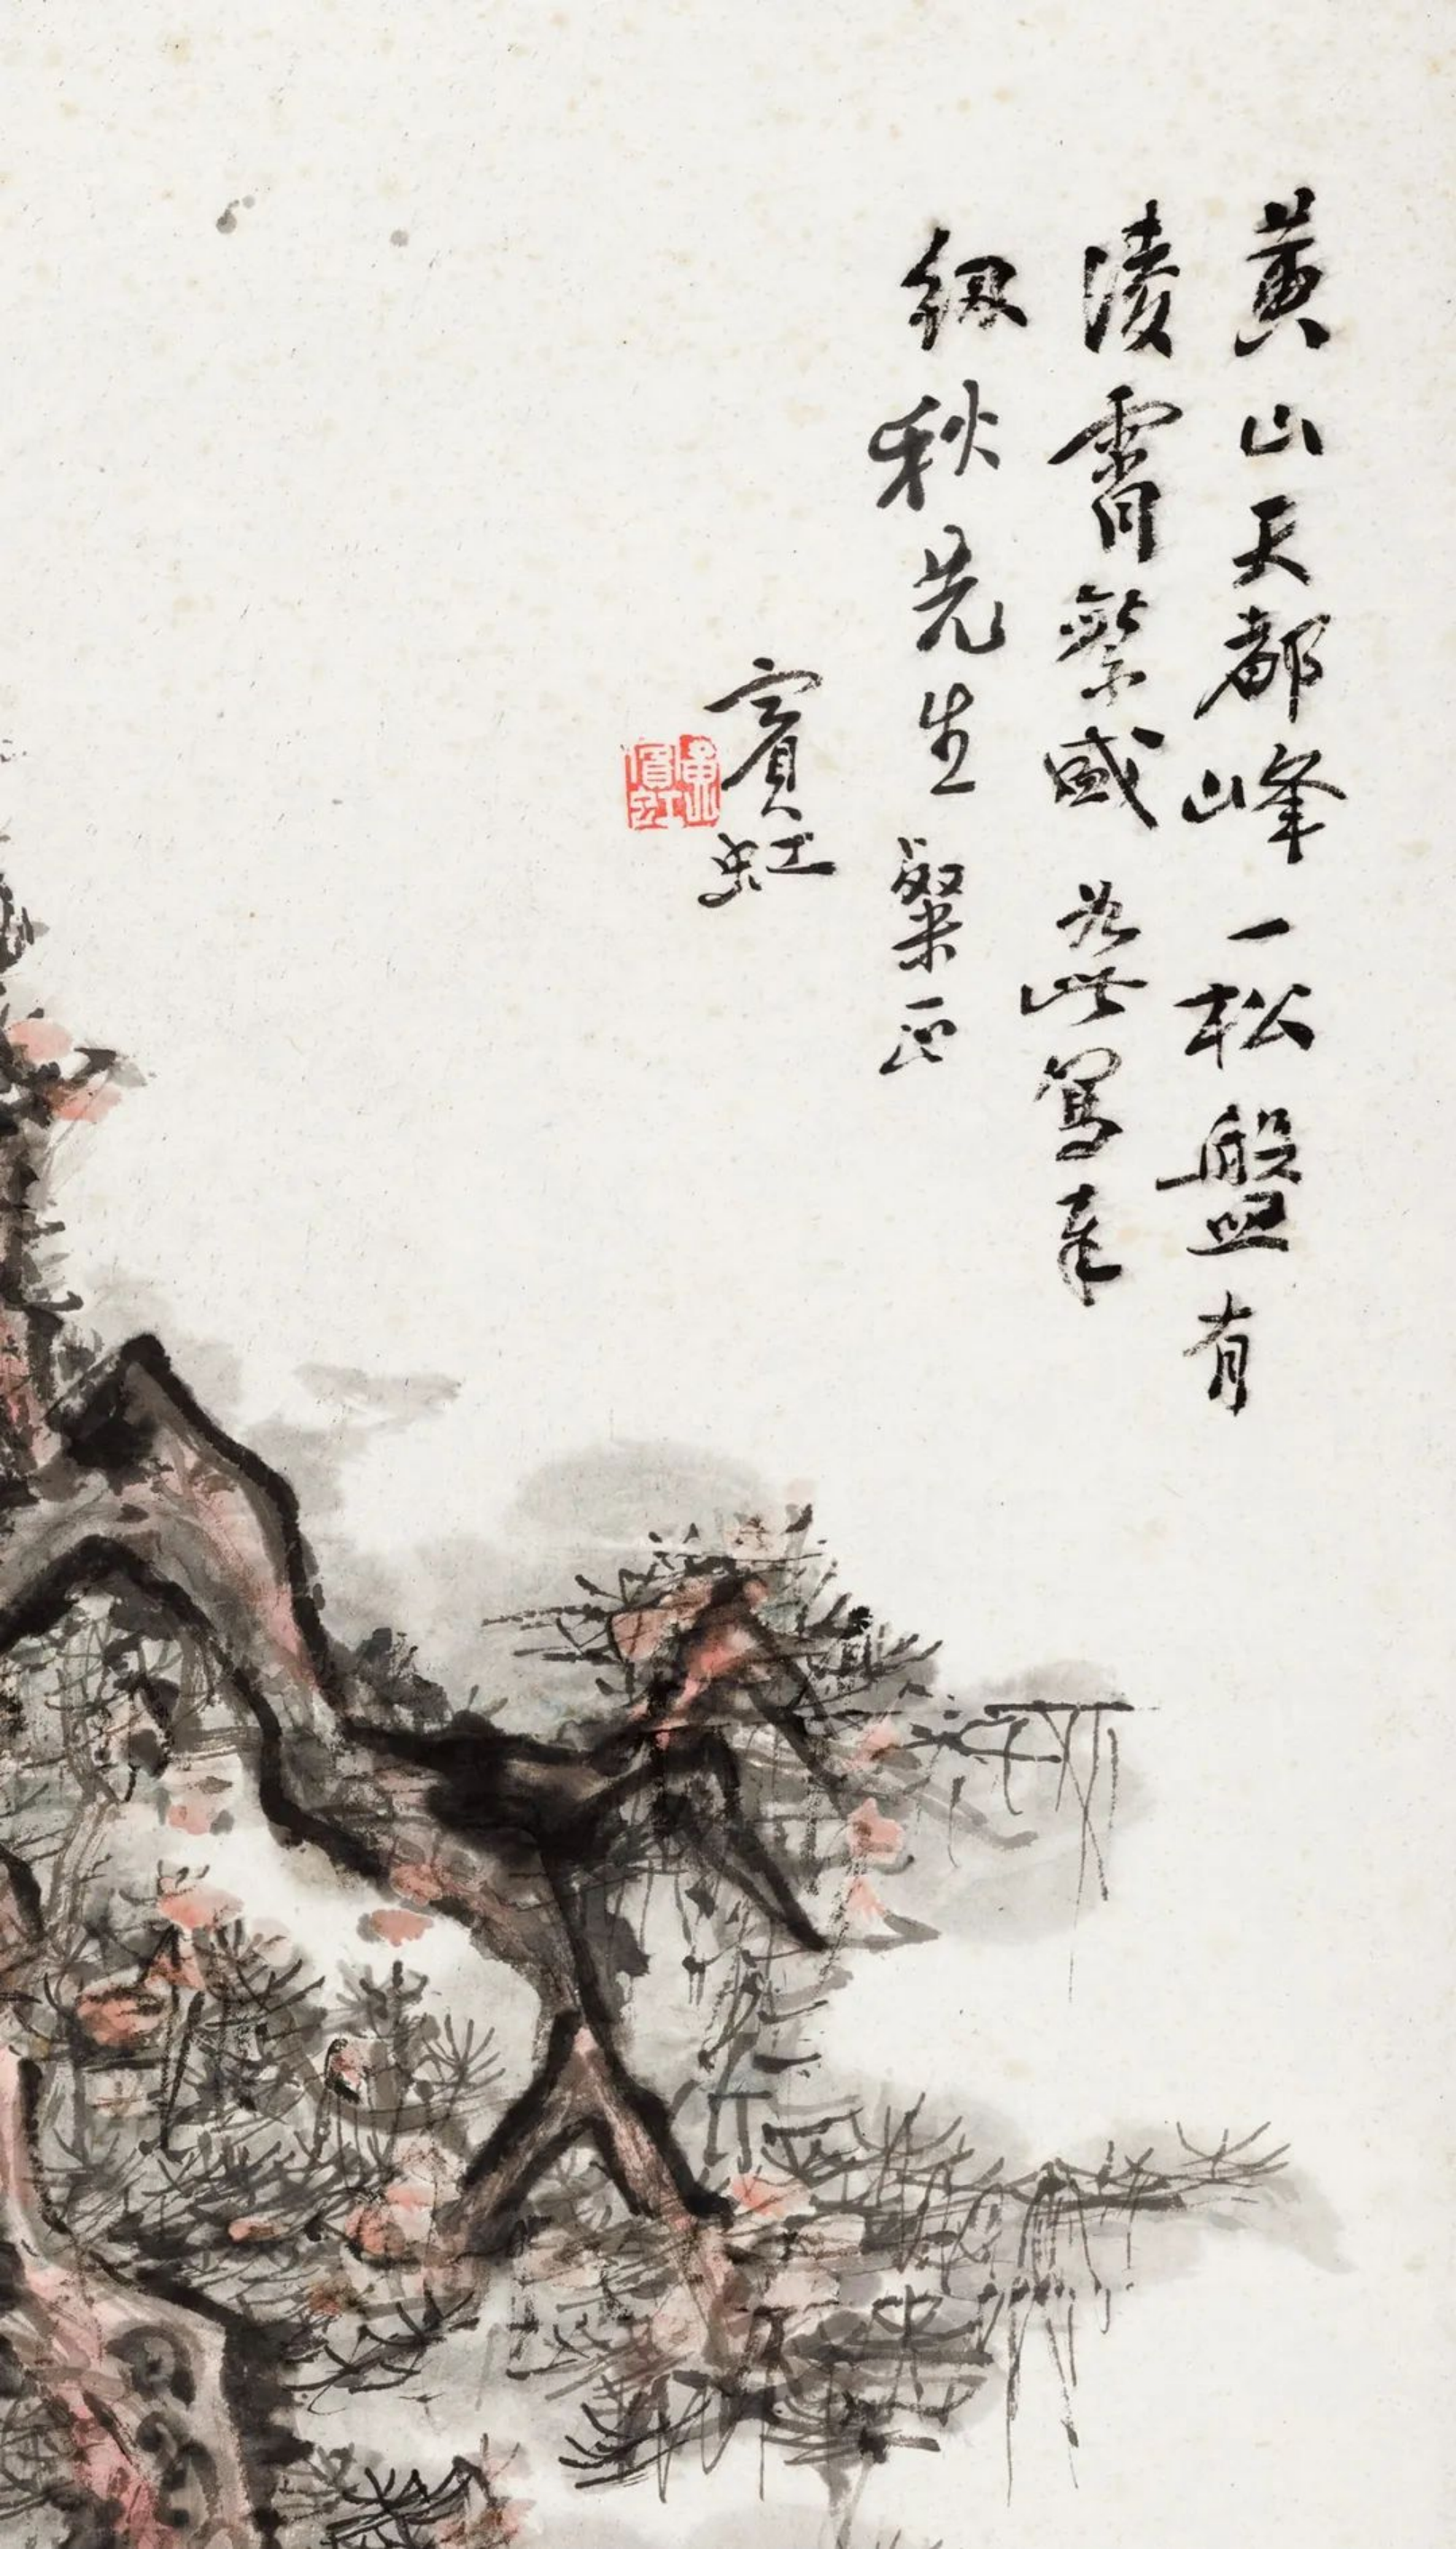 黃山天都峰一松盤有
淩霄繁盛為此寫奉
紉秋先生粲正
賓虹
黃山
賓虹